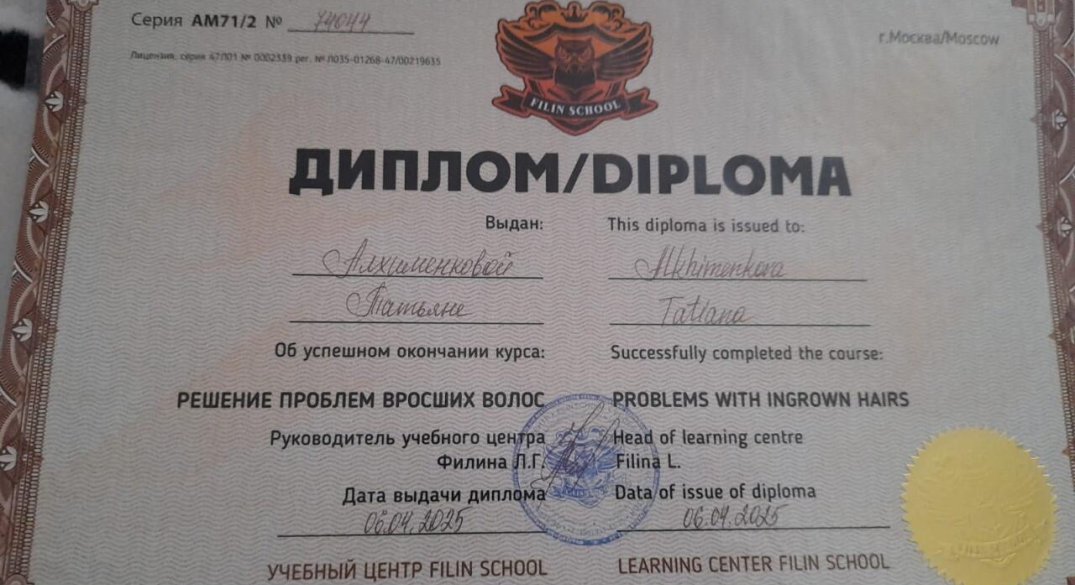 Серия АМ71/2 № 74044
Лицензия, серия 47Л01 № 0002339 рег. № Л035-01268-47/00219635
г.Москва/Moscow
FILIN SCHOOL
ДИПЛОМ/DIPLOMA
Выдан: This diploma is issued to:
Алхименковой Alkhimenkova
Татьяне Tatiana
Об успешном окончании курса: Successfully completed the course:
РЕШЕНИЕ ПРОБЛЕМ ВРОСШИХ ВОЛОС PROBLEMS WITH INGROWN HAIRS
Руководитель учебного центра Head of learning centre
Филина Л.Г. Filina L.
Дата выдачи диплома Data of issue of diploma
06.04.2025 06.04.2025
УЧЕБНЫЙ ЦЕНТР FILIN SCHOOL LEARNING CENTER FILIN SCHOOL